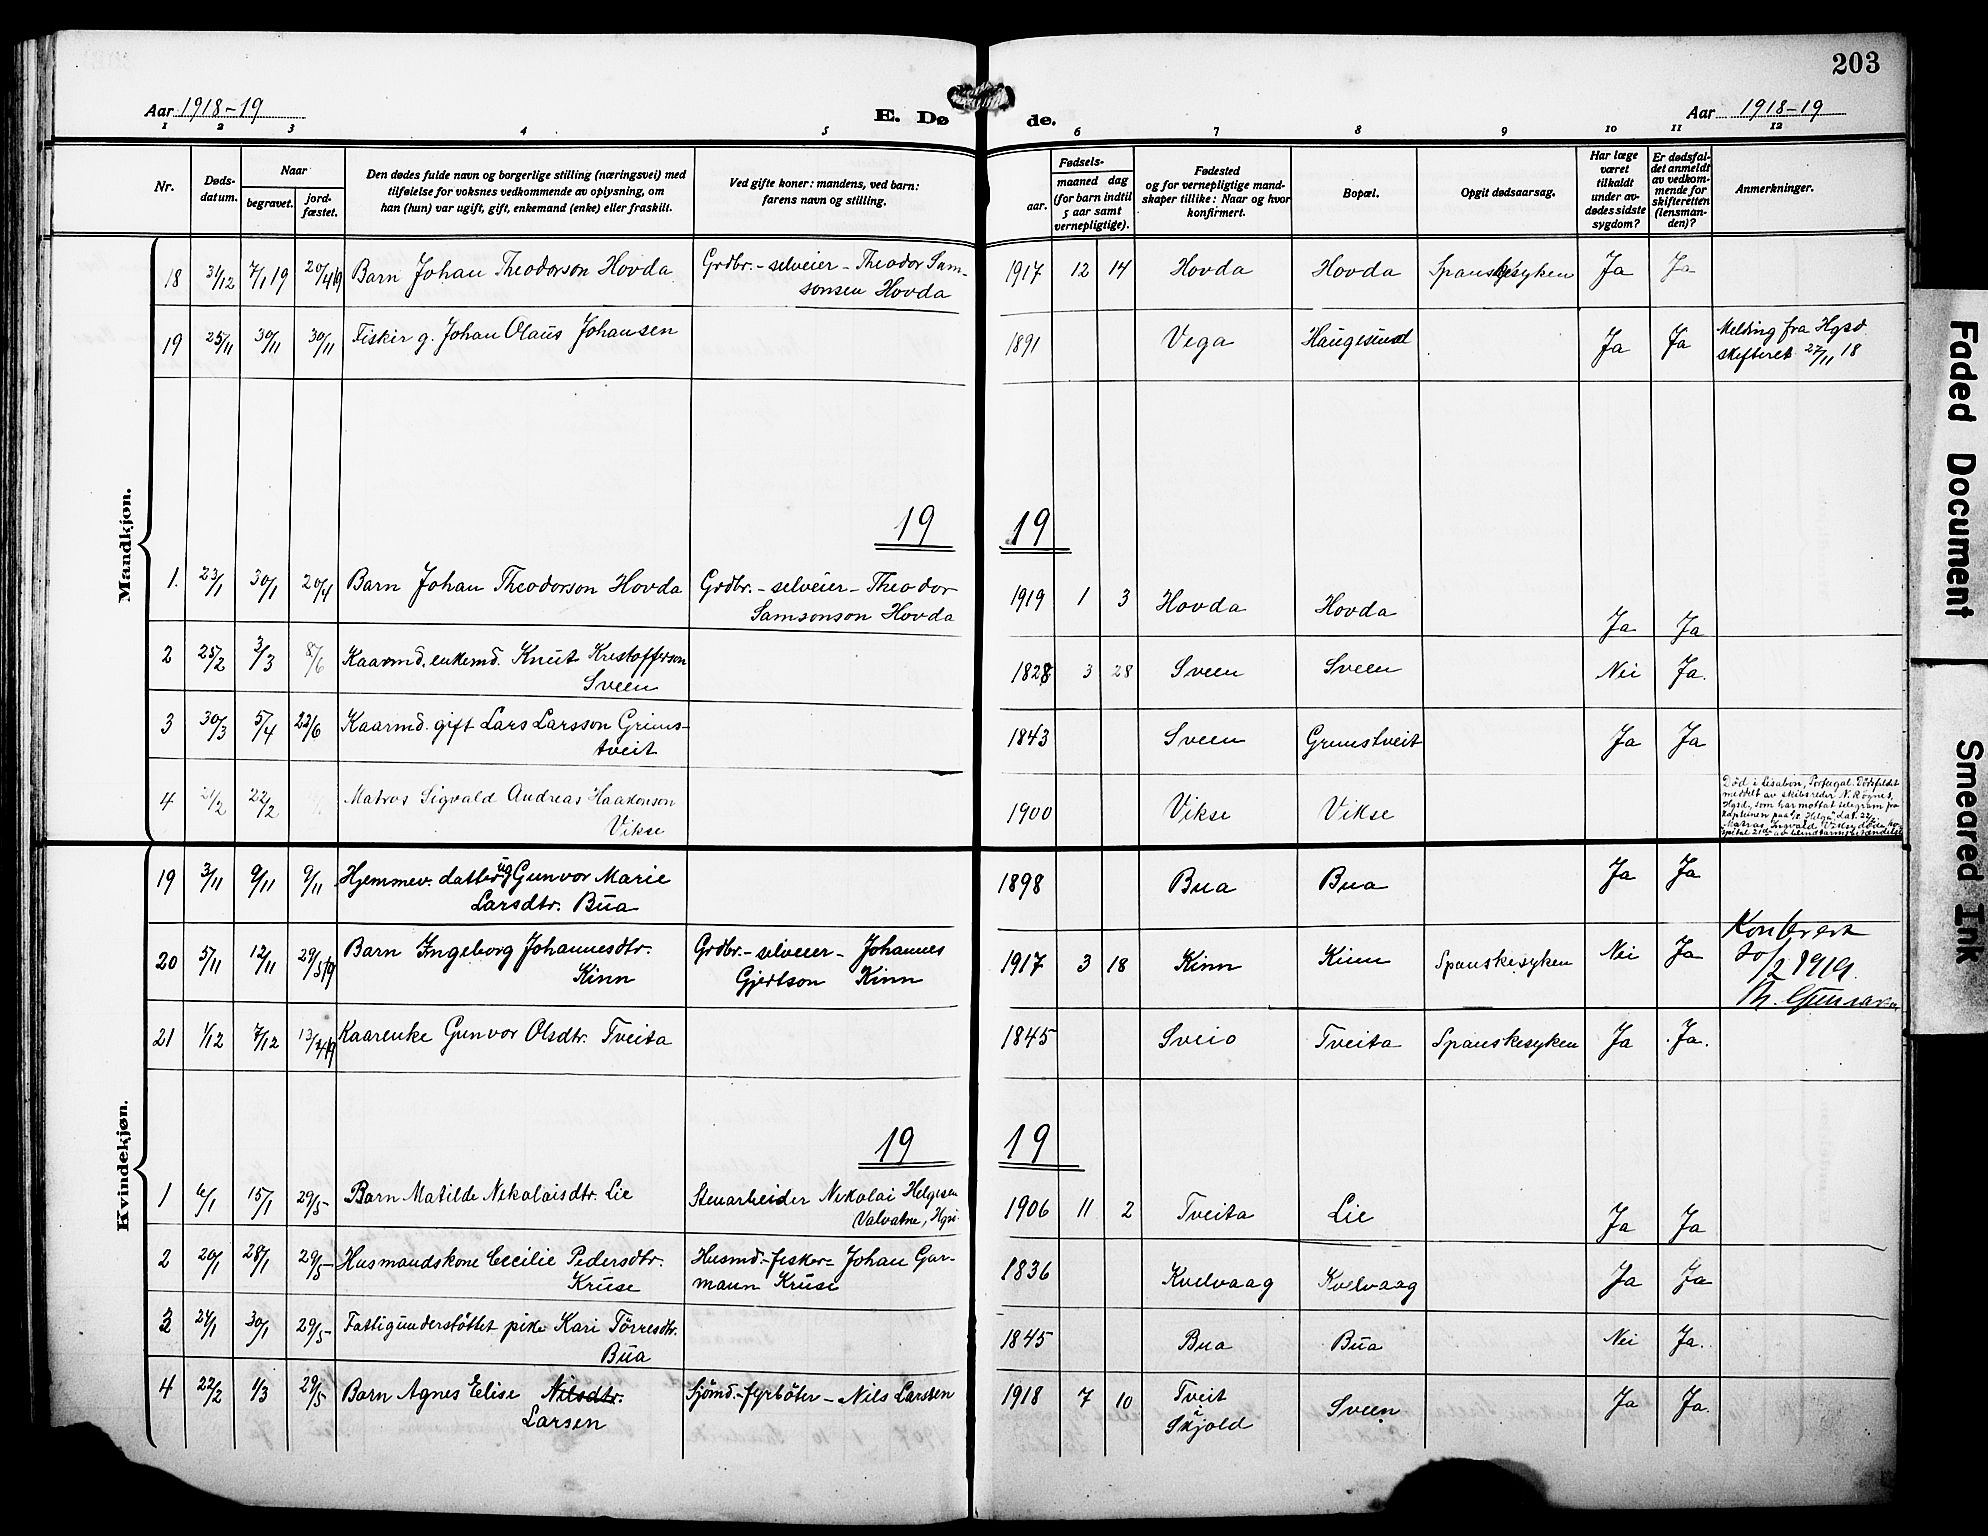 203
Aar 1918-19
E. Døde.
Aar 1918-19
1 2 3 4 5 6 7 8 9 10 11 12
Nr.
Døds-
datum.
Naar
begravet.
jord-
fæstet.
Den dødes fulde navn og borgerlige stilling (næringsvei) med
tilføielse for voksnes vedkommende av oplysning, om
han (hun) var ugift, gift, enkemand (enke) eller fraskilt.
Ved gifte koner: mandens, ved barn:
farens navn og stilling.
Fødsels-
aar.
maaned dag
(for barn indtil
5 aar samt
vernepligtige).
Fødested
og for vernepligtige mand-
skaper tillike: Naar og hvor
konfirmert.
Bopæl.
Opgit dødsaarsag.
Har læge
været
tilkaldt
under av-
dødes sidste
sygdom?
Er dødsfal-
det anmeldt
av vedkom-
mende for
skifteretten
(lensman-
den)?
Anmerkninger.
Mandkjøn.
18 31/12 7/1 19 20/4 19 Barn Johan Theodorson Hovda Grdbr.-selveier-Theodor Sam-
sonsen Hovda 1917 12 14 Hovda Hovda Spanskesyken Ja Ja
19 25/11 30/11 30/11 Fisker g. Johan Olaus Johansen 1891 Vega Haugesund Ja Ja Melding fra Hgsd
skifteret 27/11 18
19 19
1. 23/1 30/1 20/4 Barn Johan Theodorson Hovda Grdbr.-selveier-Theodor
Samsonson Hovda 1919 1 3 Hovda Hovda Ja Ja
2 25/2 3/3 8/6 Kaarmd. enkemd. Knut Kristofferson
Sveen 1828 3 28 Sveen Sveen Nei Ja.
3 30/3 5/4 22/6 Kaarmd. gift Lars Larsson Grims-
tveit 1843 Sveen Grimstveit Ja Ja
4 21/2 22/2 Matros Sigvald Andreas Haakonson
Vikse 1900 Vikse Vikse
Død i Lisabon, Portugal. Dödsfaldet
meddelt av skibsreder N. Rögnes,
Hgsd, som har mottat telegram fra
kapteinen paa "Helga" dat. 22/2
Matros Ingvald Vikse döde hos-
pital 21de av blindtarmsbetændelse
Kvindekjøn.
19 3/11 9/11 9/11 Hjemmev. datter ug Gunvor Marie
Larsdtr. Bua 1898 Bua Bua Ja Ja
20 5/11 12/11 29/5 19 Barn Ingeborg Johannesdtr.
Kinn Grdbr.-selveier- Johannes
Gjertson Kinn 1917 3 18 Kinn Kinn Spanskesyken Nei Ja
Konferert
20/2 1919.
21 1/12 7/12 13/4 19 Kaarenke Gunvor Olsdtr. Tveita 1845 Sveio Tveita Spanskesyken Ja Ja.
19 19
1 6/1 15/1 29/5- Barn Matilde Nikolaisdtr. Lie Stenarbeider Nikolai Helgesen
Valvatne, Hgs. 1906 11 2 Tveita Lie Ja Ja
2 20/1 28/1 29/5- Husmandskone Cecilie Pedersdtr.
Kruse Husmd.-fisker- Johan Gar-
mann Kruse 1836 Kvelvaag Kvelvaag Ja Ja
3 24/1 30/1 29/5- Fattigunderstöttet pike Kari Törresdtr.
Bua 1845 Bua Bua Nei Ja.
4 22/2 1/3 29/5 Barn Agnes Elise Nilsdtr.
Larsen Sjömd.-fyrböter- Nils Larssen 1918 7 10 Tveit
i
Skjold Sveen Ja Ja.
Faded Document
Smeared Ink